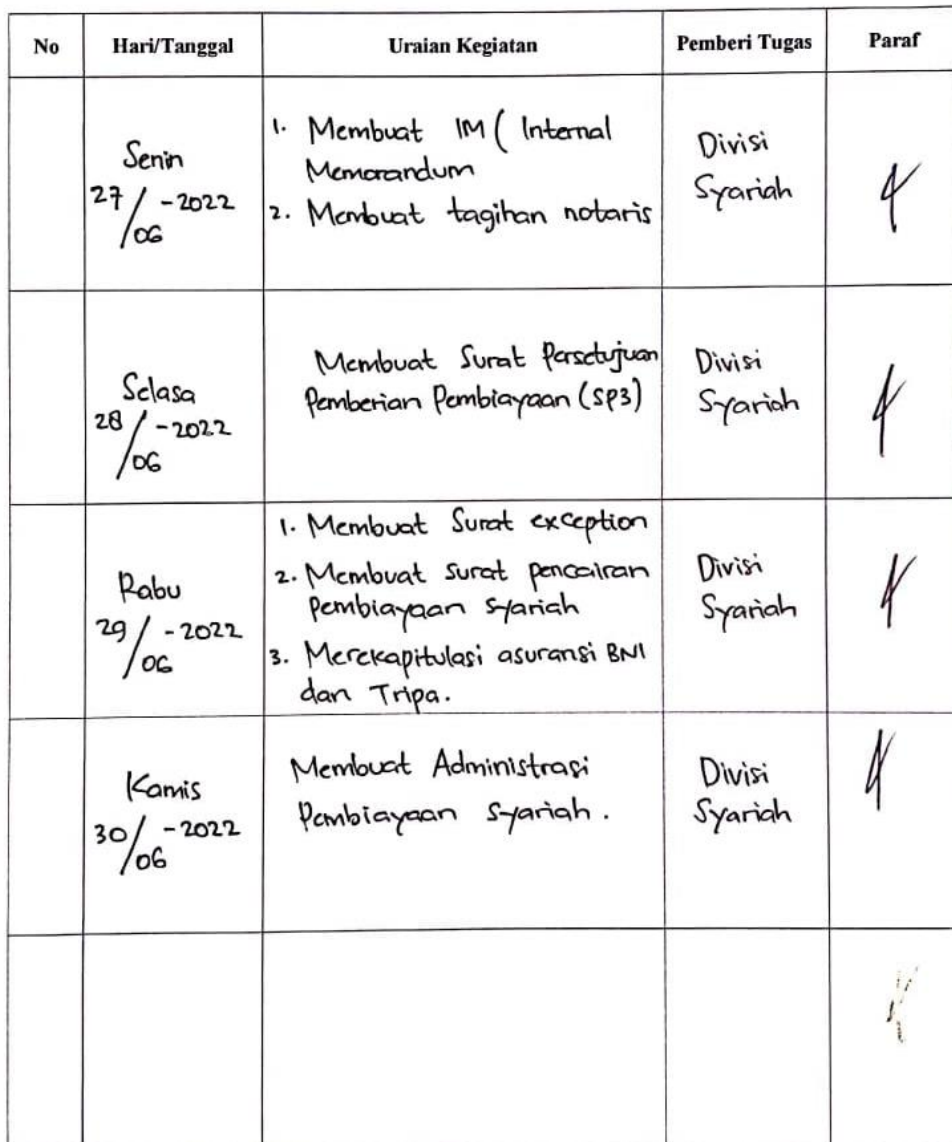 No Hari/Tanggal Uraian Kegiatan Pemberi Tugas Paraf
Senin
27/06-2022
1. Membuat IM ( Internal
Memorandum
2. Membuat tagihan notaris
Divisi
Syariah
Selasa
28/06-2022
Membuat Surat Persetujuan
Pemberian Pembiayaan (SP3)
Divisi
Syariah
Rabu
29/06-2022
1. Membuat Surat exception
2. Membuat surat pencairan
pembiayaan syariah
3. Merekapitulasi asuransi BNI
dan Tripa.
Divisi
Syariah
Kamis
30/06-2022
Membuat Administrasi
Pembiayaan syariah.
Divisi
Syariah